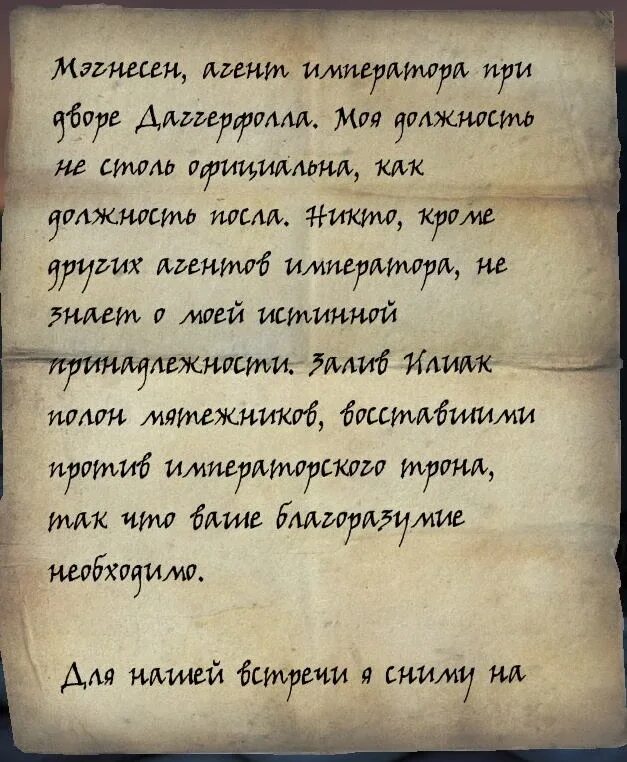 Мэгнесен, агент императора при
дворе Даггерфолла. Моя должность
не столь официальна, как
должность посла. Никто, кроме
других агентов императора, не
знает о моей истинной
принадлежности. Залив Илиак
полон мятежников, восставшими
против императорского трона,
так что ваше благоразумие
необходимо.

Для нашей встречи я сниму на